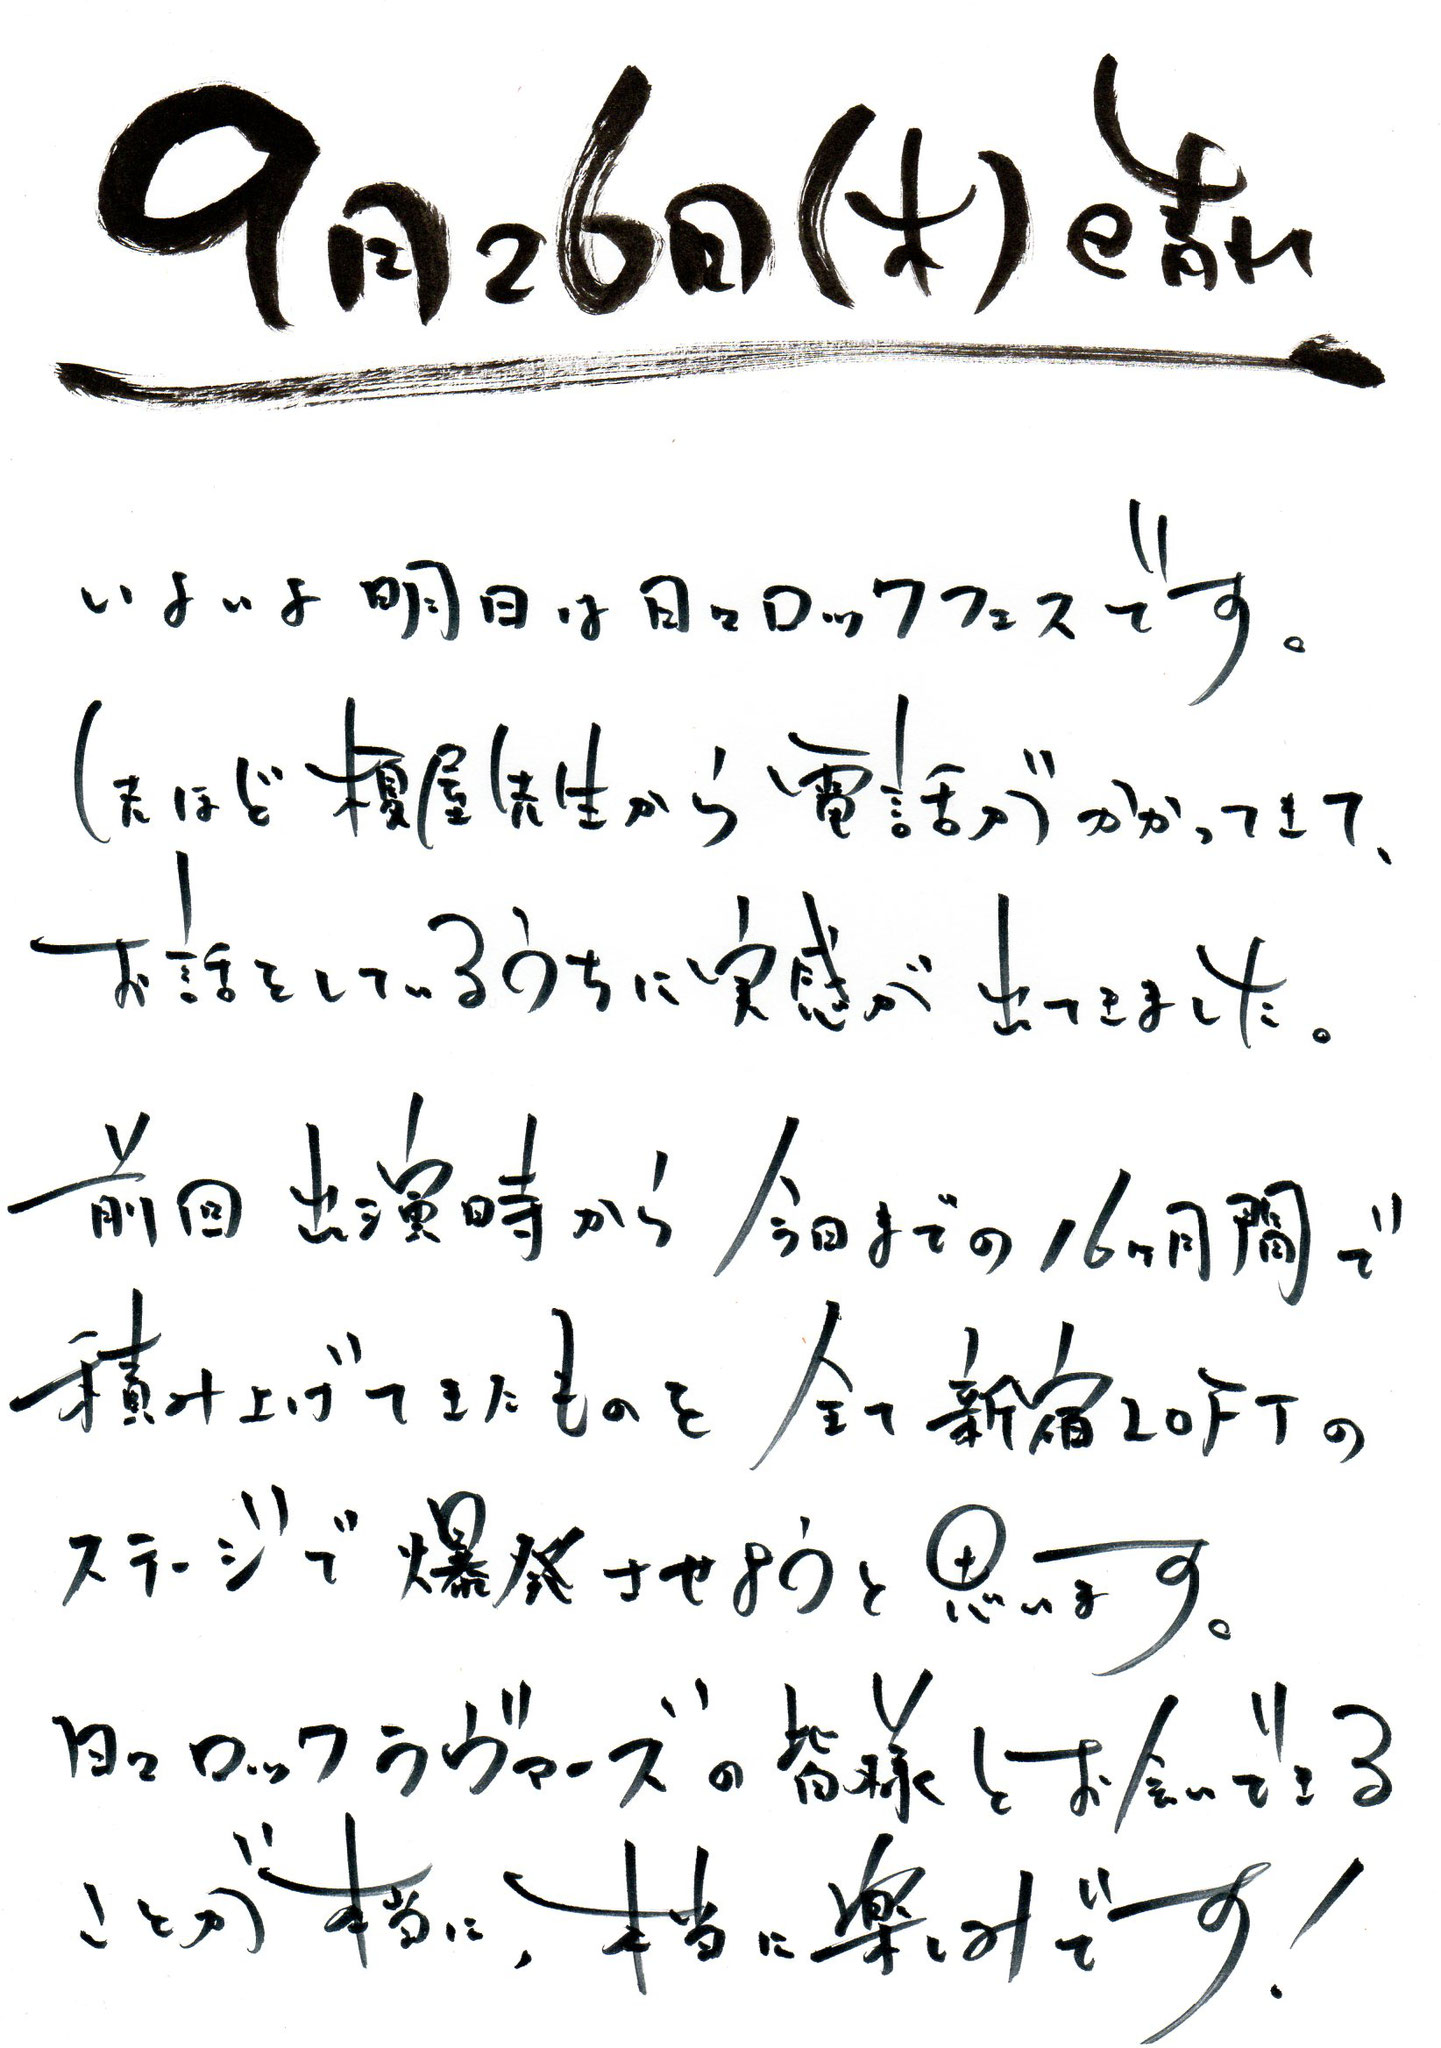 9月26日(木)晴れ
いよいよ明日は日々ロックフェスです。
先ほど榎屋先生から電話がかかってきて、
お話をしているうちに実感が出てきました。
前回出演時から今日までの16ヶ月間で
積み上げてきたものを全て新宿LOFTの
ステージで爆発させようと思います。
日々ロックラヴァーズの皆様とお会いできる
ことが本当に、本当に楽しみです!